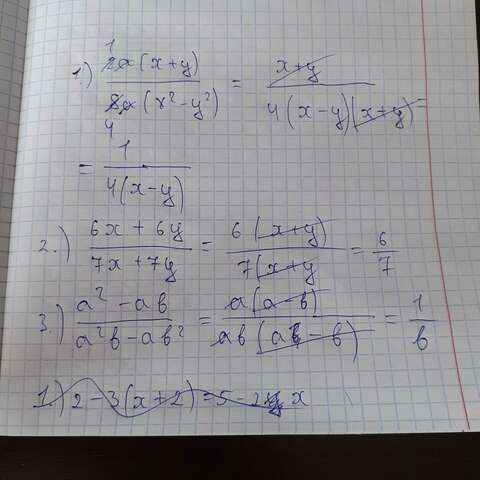 1.) 2a(x+y) / 8a(x²-y²) = x+y / 4(x-y)(x+y) =
1
4
= 1 / 4(x-y)
2.) 6x+6y / 7x+7y = 6(x+y) / 7(x+y = 6/7
3.) a²-aв / a²в-aв² = a(a-в) / aв(a-в) = 1/в
1.) 2-3(x+2)=5-2x